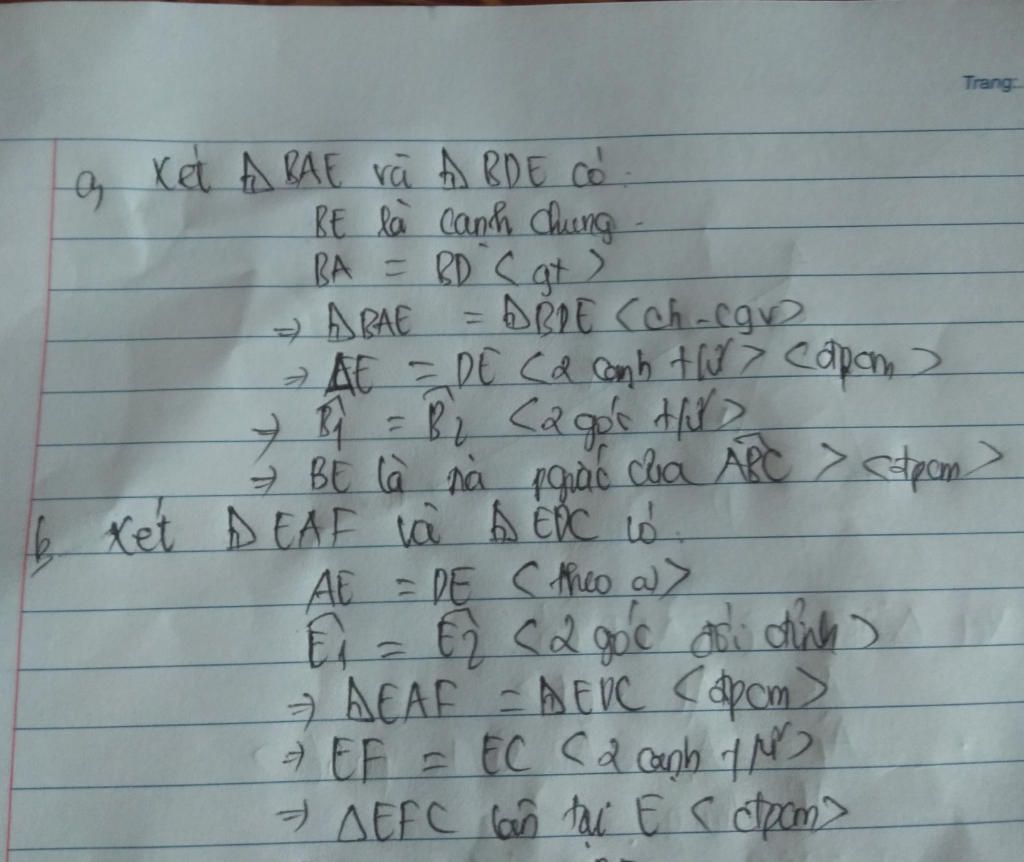 Trang:
a, Xét ΔBAE và ΔBDE có:
BE là cạnh chung.
BA = BD <gt>
=> ΔBAE = ΔBDE <ch-cgv>
=> AE = DE <2 cạnh t/ứ> <đpcm>
=> B̂1 = B̂2 <2 góc t/ứ>
=> BE là pgiác của ABC > <đpcm>
b, Xét ΔEAF và ΔEDC có:
AE = DE <theo a>
Ê1 = Ê2 <2 góc đối đỉnh>
=> ΔEAF = ΔEDC <đpcm>
=> EF = EC <2 cạnh t/ứ>
=> ΔEFC cân tại E <đpcm>